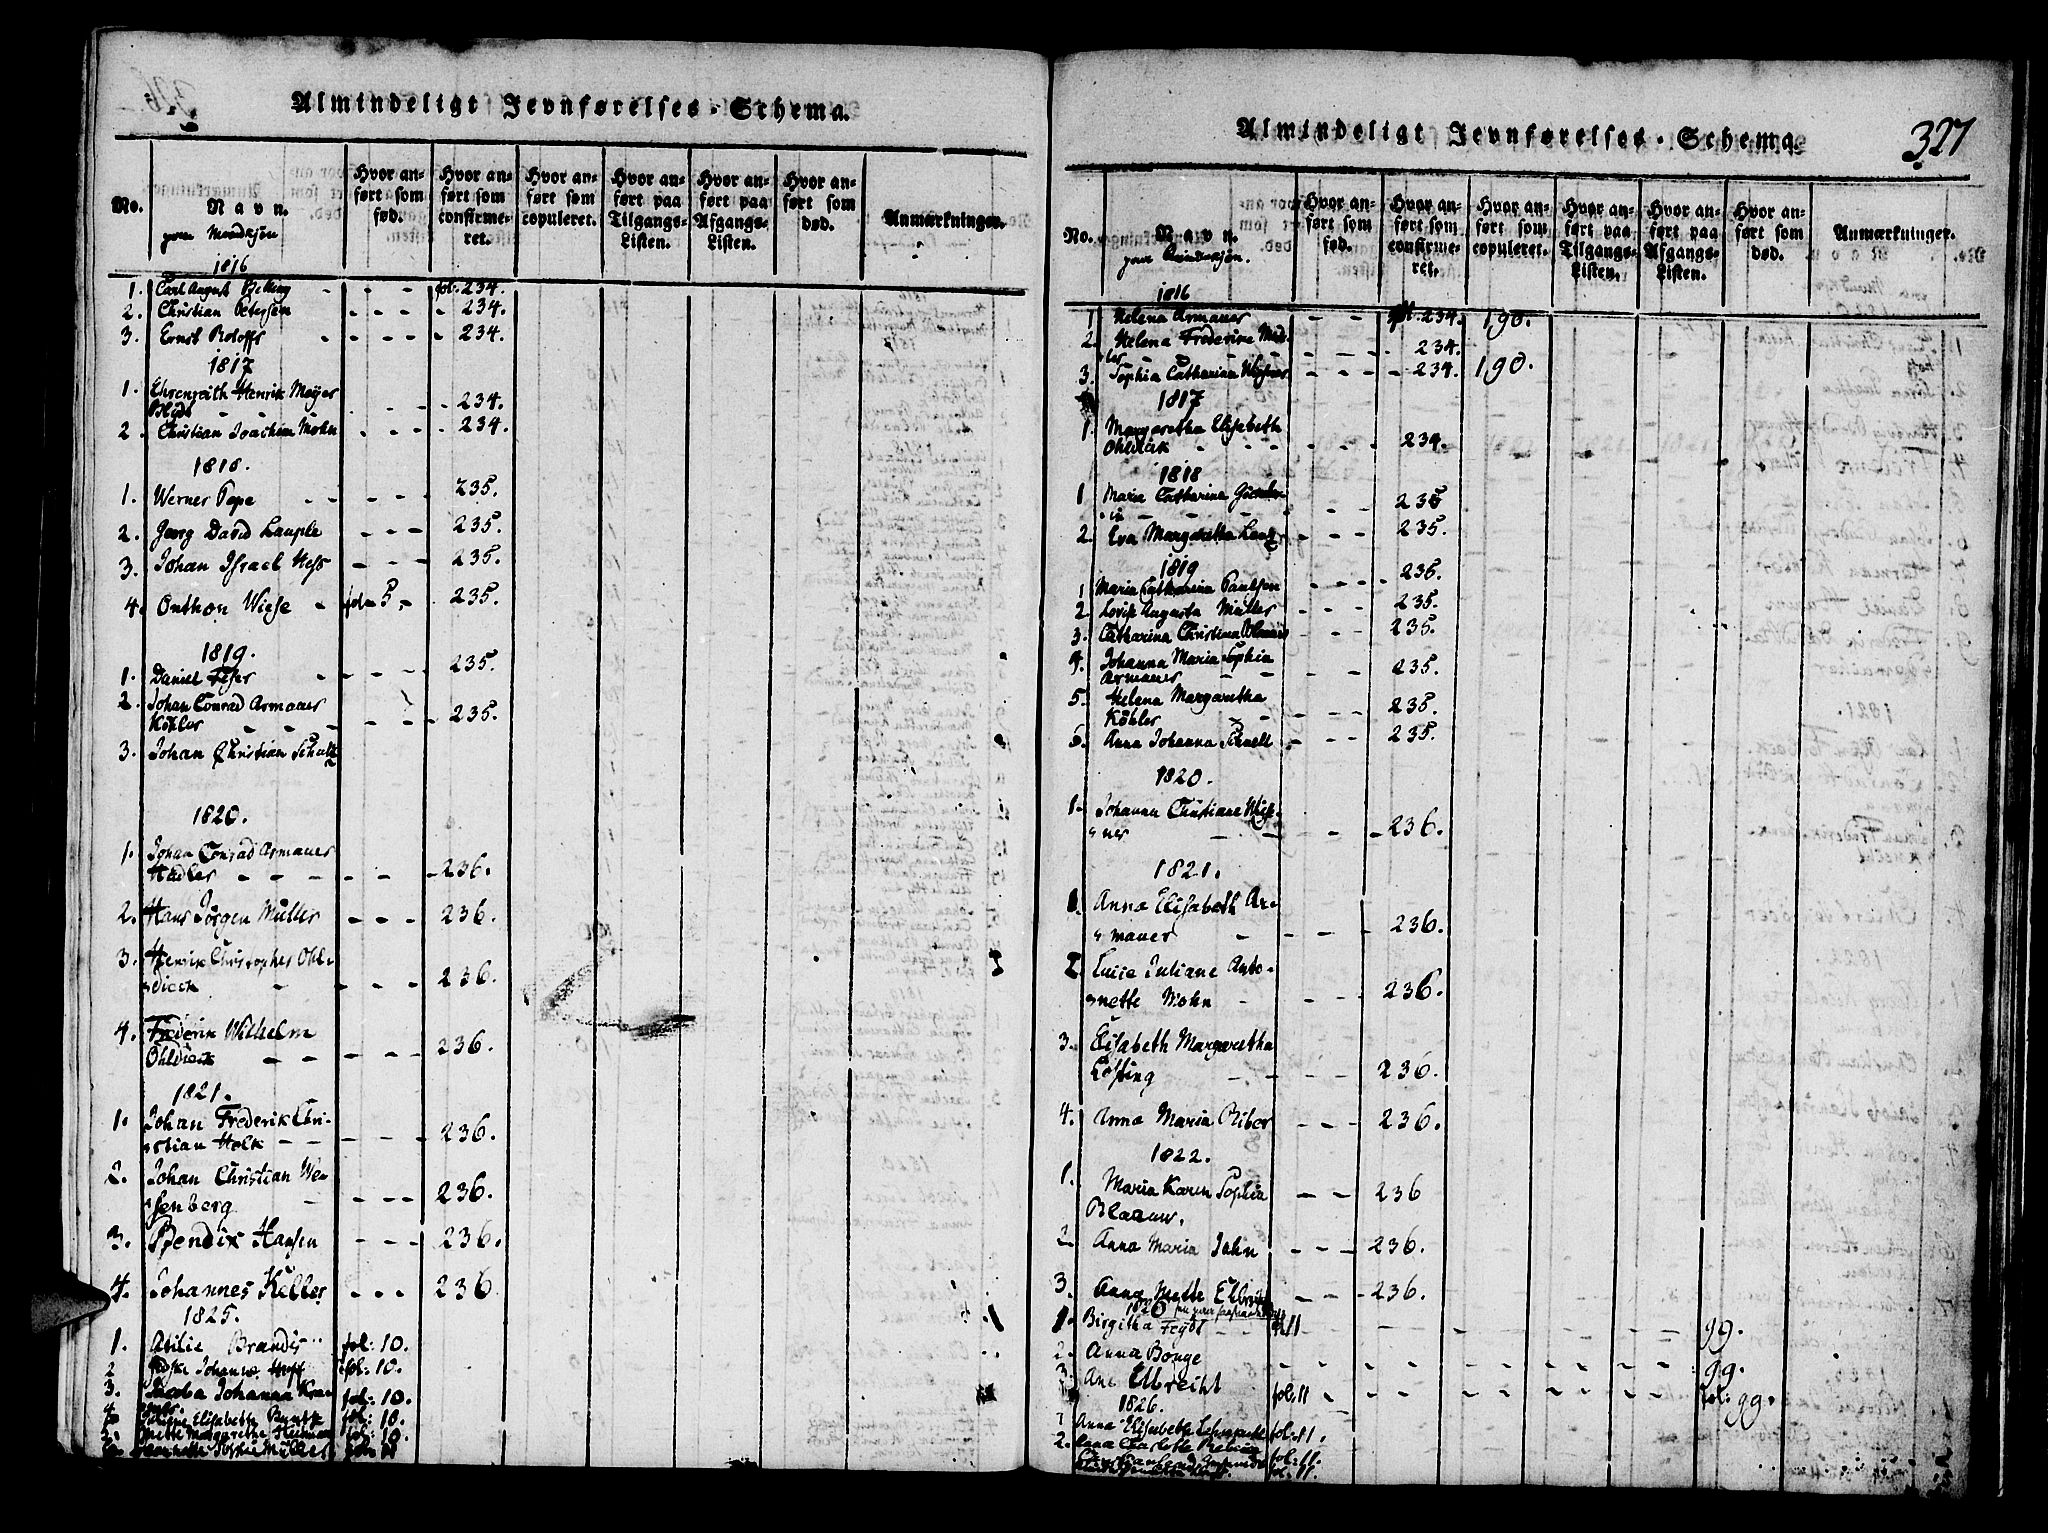 Almindeligt Jevnførelses-Schema.
No.
Navn.
Hvor anført som fød.
Hvor anført som confirmeret.
Hvor anført som copuleret.
Hvor anført paa Tilgangs-Listen.
Hvor anført paa Afgangs-Listen.
Hvor anført som død.
Anmærkninger.
1816
1. Carl August fol: 234.
2. Christian Petersen 234.
3. Ernst Roloffs 234.
1817
1. Ehrenfrith Henrik Meyer
Blyds 234.
2. Christian Joachim Mohn 234.
1818.
1. Werner Pape 235.
2. Georg David Lauple 235.
3. Johan Israel Hess 235.
4. Onthon Wiese fol 5. 235.
1819.
1. Daniel 235.
2. Johan Conrad Armauer
Köhler 235.
3. Johan Christian Schultz
1820.
1. Johan Conrad Armauer
Hadler 236.
2. Hans Jörgen Müller 236.
3. Henrik Christopher Ohl-
dieck 236.
4. Frederik Wilhelm
Ohldieck 236.
1821.
1. Johan Frederik Chri-
stian Holk 236.
2. Johan Christian We-
senberg 236.
3. Bendix Hansen 236.
4. Johannes Keller 236
1825.
1. Atilie Brandis fol: 10.
2 Johanne fol: 10.
3. Johanna fol: 10.
Elisabeth fol: 10.
2. Mette Margarethe fol: 10.
Sophie Müller fol: 11
Almindeligt Jevnførelses-Schema.
327
No.
Navn.
Hvor anført som fød.
Hvor anført som confirmeret.
Hvor anført som copuleret.
Hvor anført paa Tilgangs-Listen.
Hvor anført paa Afgangs-Listen.
Hvor anført som død.
Anmærkninger.
1816
1 Helena Armauer fol. 234. 190.
2. Helena Frederike
234.
3. Sophia Catharina 234. 190.
1817
1. Margaretha Elisabeth
Ohldieck 234.
1818
1 Maria Catharina
235
2. Eva Margaretha 235.
1819
1 Maria Catharina Paulsen 235.
2. Lovise Augusta Müller 235.
3. Catharina Christina 235.
4. Johanna Maria Sophia
Armauer 235.
5. Helena Margaretha
Köhler 235.
6. Anna Johanna Schnell 235.
1820.
1. Johanna Christiane
ner 236.
1821.
1. Anna Elisabeth Ar-
mauer 236.
2. Luise Juliane Anto-
nette Mohn 236.
3. Elisabeth Margaretha
Lösting 236.
4. Anna Maria Riber 236.
1822.
1. Maria Karen Sophia 236
Blaauw.
2 Anna Maria Jahn 236.
3. Anna Mette 236.
1. Birgitha Feydt fol. 11 99.
2. Anna Bonge 99.
3. Ane Elbrecht fol: 11 fol: 99.
1826.
1 Anna Elisabeth fol: 11.
2. Anna Charlotte fol: 11.
fol: 11.